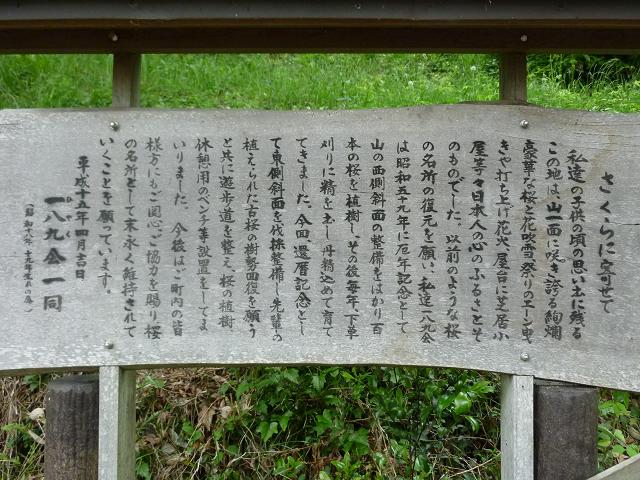 さくらに寄せて
私達の子供の頃の思い出に残る
この地は山一面に咲き誇る絢爛
豪華な桜と花吹雪、祭りのエンヤ
きや打ち上げ花火、屋台に芝居小
屋等々日本人の心のふるさとそ
のものでした。以前のような桜
の名所の復元を願い、私達一八九会
は昭和五十九年に厄年記念として
山の西側斜面の整備をはかり百
本の桜を植樹し、その後毎年、下草
刈りに精を出し丹精込めて育て
てきました。今回、還暦記念とし
て東側斜面を伐採整備し先輩の
植えられた古桜の樹勢回復を願う
と共に遊歩道を整え、桜の植樹
休憩用のベンチ等設置をしてま
いりました。今後はご町内の皆
様方にもご関心、ご協力を賜り桜
の名所として末永く維持されて
いくことを願っています。
平成十五年四月吉日
一八九会一同